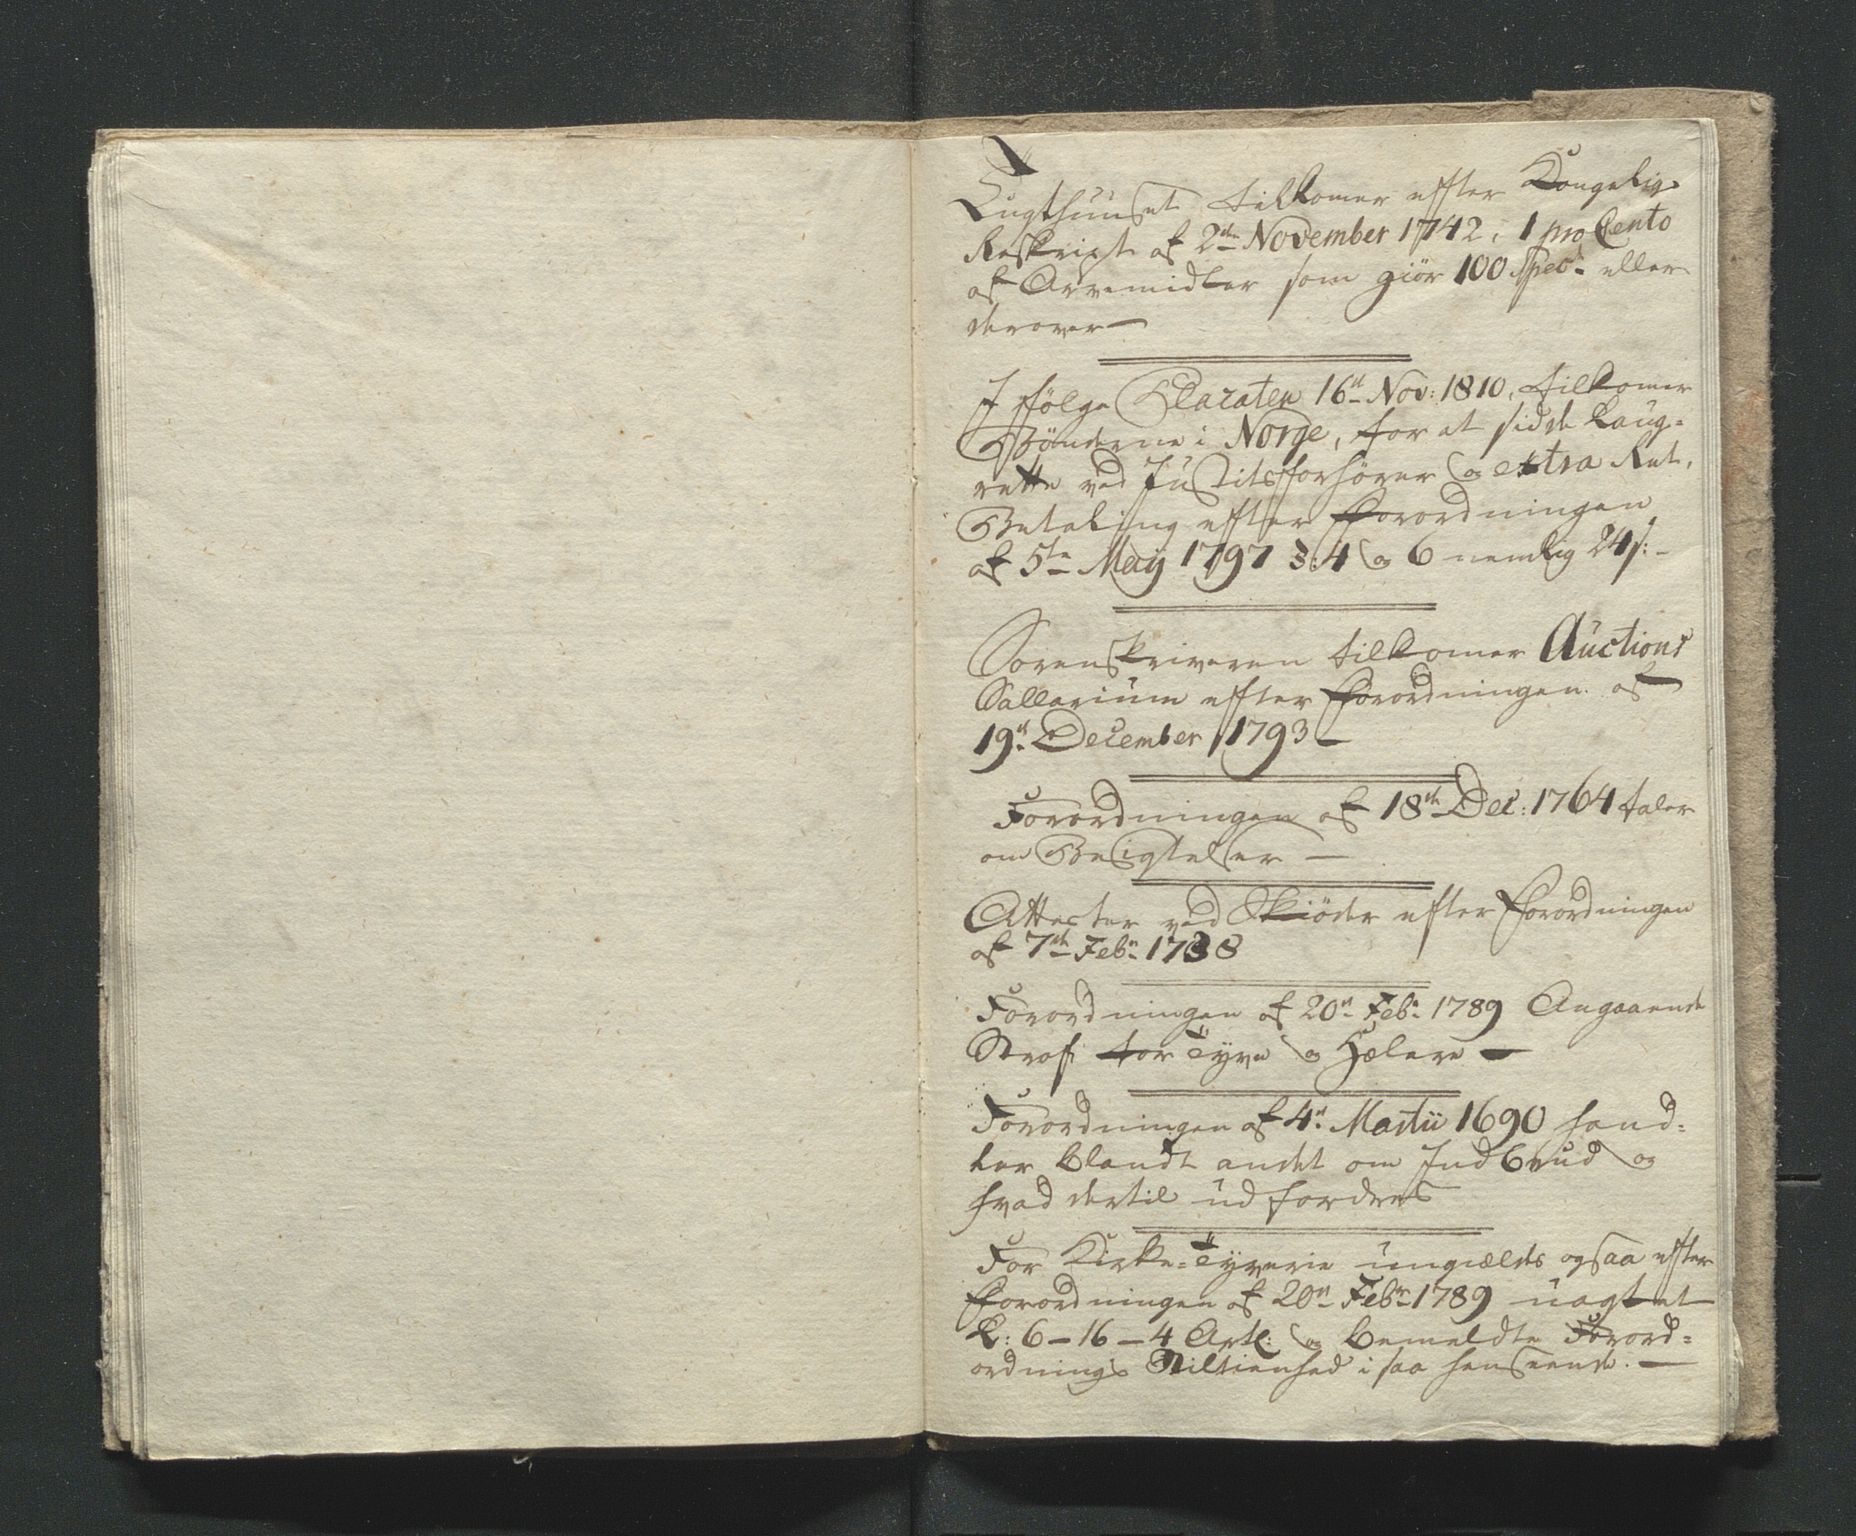 Tugthuuset tilkomer efter Kongelig
Reskript af 2de November 1742, 1 pro Cento
af Arvemidler som giör 100 Specd. eller
derover —
I fölge Placaten 16de Nov: 1810, tilkomer
Bönderne i Norge, for at sidde Laug-
rette ved Justitsforhörer og extra Ret,
Betaling efter Forordningen
af 5te Maij 1797 §: 4 og 6 nemlig 24 s: –
Sorenskriveren tilkomer Auctions
Sallarium efter Forordningen af
19de December 1793 —
Forordningen af 18de Dec: 1764 taler
om Besigtelser —
Attester ved Skiöder efter Forordningen
af 7de Febr. 1738
Forordningen af 20de Febr. 1789 Angaaende
Straf for Tyve og Hælere —
Forordningen af 4de Martii 1690 hand-
ler blandt andet om Indbrud og
hvad dertil udfordres
For Kirke-Tyverie ungiældes ogsaa efter
Forordningen af 20de Febr. 1789 uagtet
L: 6 – 16 – 4 Artl: og bemeldte Forord-
ordnings Stiltienhed i saa henseende. —